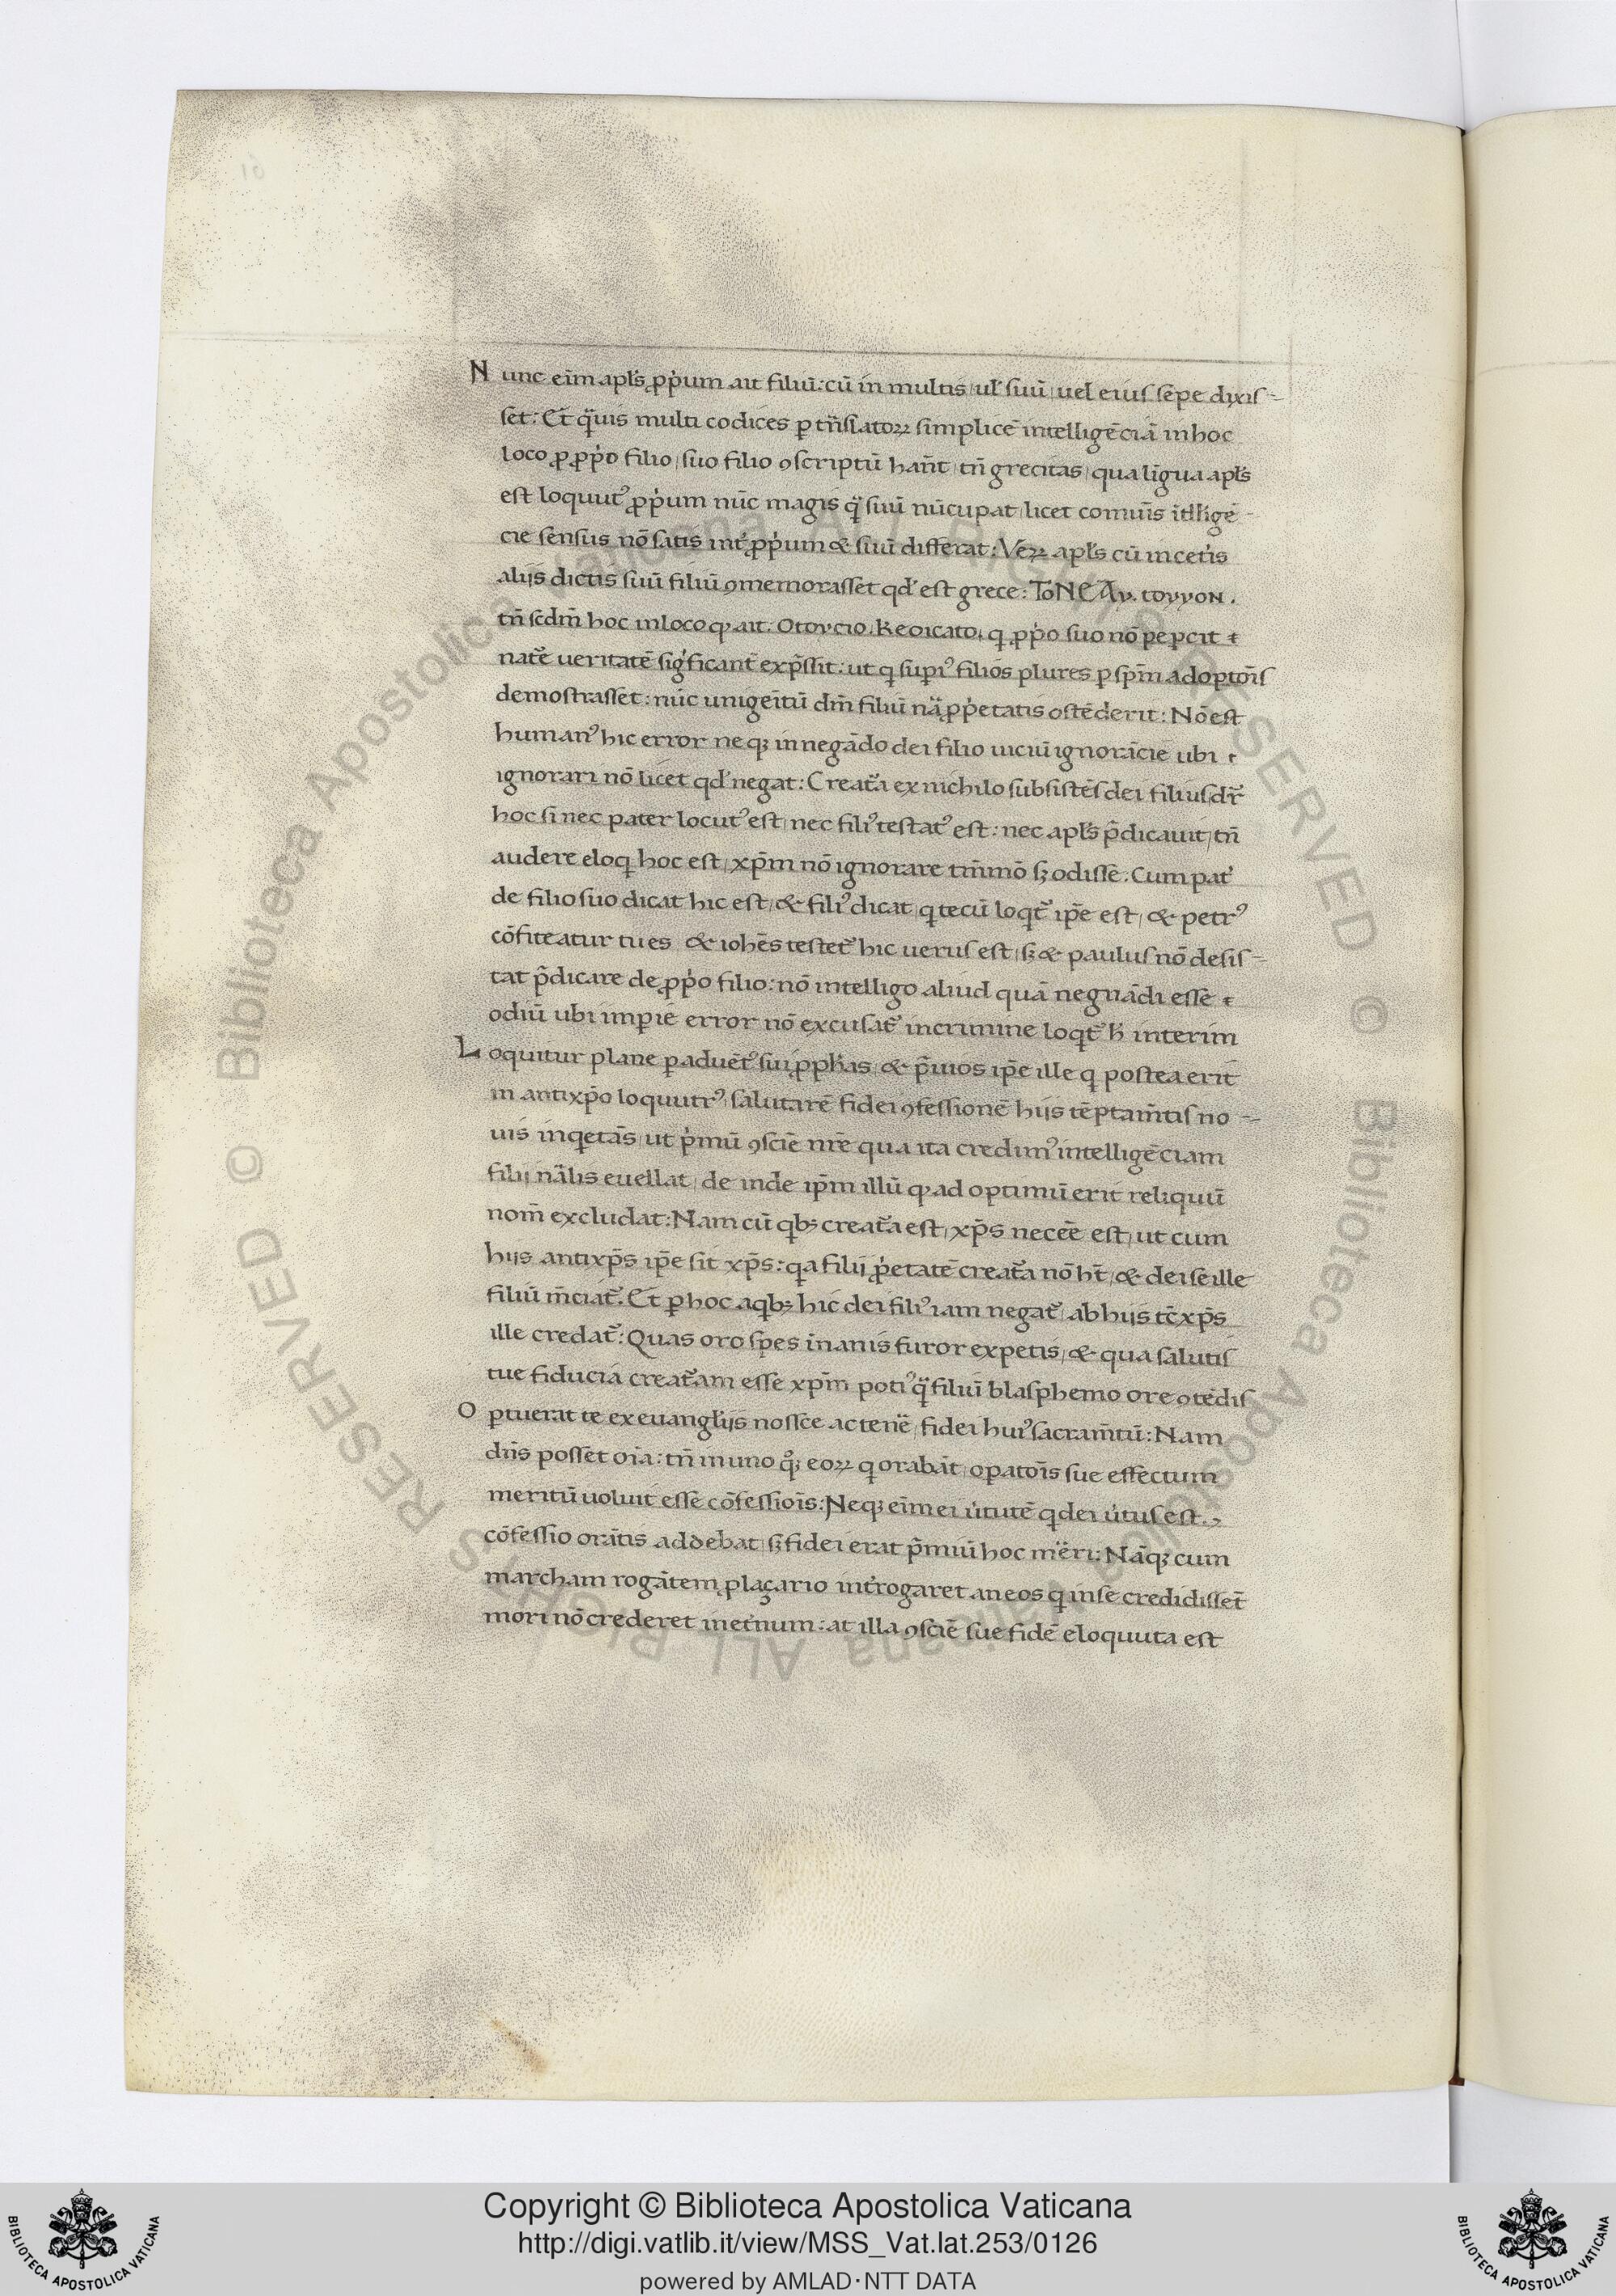 Nunc eīm apl's ꝓpͥum ait filiū: cū in multis / ul' suū / uel eius sepe dixis-
set: Et qͣuis multi codices ꝑ tn̄slatoꝝ simplicē intelligēciā in hoc
loco ꝓ ꝓpͥo filio / suo filio ꝯscriptū han̄t / tn̄ grecitas / qua līgua apl's
est loquutꝰ ꝓpͥum nūc magis qͣ suū nūcupat / licet comuīs ītllīgē-
cie sensus nō satis int̓ ꝓpͥum & suū differat: Veꝝ apl's cū in cet̓is
alijs dictis suū filiū ꝯmemorasset qd' est grece: ToNEAv. tovyoN.
tn̄ scdm̄ hoc in loco ꝙ ait. Otovcio. Keoicato. q ꝓpͥo suo nō peꝑcit
nat̄e ueritatē sigͥficant̄ exp̄ssit: ut q supiꝰ filios plures ꝑ sp̄m adoptōis
demostrasset: nūc unigeītū dm̄ filiū nͣa ꝓpͥetatis ostēderit: Nō est
humanꝰ hic error neqꝫ in negādo dei filio uiciū ignorācie ubi
ignorari nō licet qd' negat: Creat̄a ex nichilo subsistēs dei filius dr̄
hoc si nec pater locutꝰ est / nec filiꝰ testatꝰ est: nec apl's p̄dicauit / tn̄
audere eloq hoc est / xp̄m nō ignorare tm̄mō sꝫ odisse. Cum pat̓
de filio suo dicat hic est / & filiꝰ dicat / q tecū loqt̄ ip̄e est / & petrꝰ
cōfiteatur tu es & iohēs testet̄ hic uerus est / sꝫ & paulus nō desis-
tat p̄dicare de ꝓpͥo filio: nō intelligo aliud quā negnādi esse
odiū ubi impie error nō excusat̄ in crimine loqt̄ h̄ interim
Loquitur plane ꝑ aduēt̓ sui ꝓph'as / & p̄uios ip̄e ille q postea erit
in antixp̄o loquutrꝰ / salutarē fidei ꝯfessionē hijs tēptam̄tis no-
uis inqetās / ut pͥmū ꝯsciē nr̄e qua ita credimꝰ intelligēciam
filij nāl'is euellat / de inde ip̄m illū ꝙ adoptiuū erit reliquū
nom̄ excludat: Nam cū qbꝫ creat̄a est / xp̄s necēē est / ut cum
hijs antixp̄s ip̄e sit xp̄s: qa filij pͥetatē creat̄a nō ht̄ / & dei se ille
filiū m̄ciat̄. Et ꝑ hoc a qbꝫ hic dei filiꝰ iam negat̄ / ab hijs tc̄ xp̄s
ille credat̄: Quas oro spes inanis furor expetis / & qua salutis
tue fiducia creat̄am esse xp̄m potiꝰ qͣ filiū blasphemo ore ꝯtēdis
Optuerat te ex euangl'ijs nossce ac tenē / fidei huiꝰ sacram̄tū: Nam
dn̄s posset oīa: tn̄ in uno qͦqꝫ eoꝝ q orabāt / opatōis sue effectum
meritū uoluit esse cōfessiōis: Neqꝫ eīm ei u̓tutē q dei u̓tus est.
cōfessio orātis addebat / sꝫ fidei erat p̄miū hoc mēri: Nāqꝫ cum
marcham rogātem ꝓ laçario int̓rogaret an eos q in se credidisset̄
mori nō crederet in et̓num: at illa ꝯsciē sue fidē eloquuta est